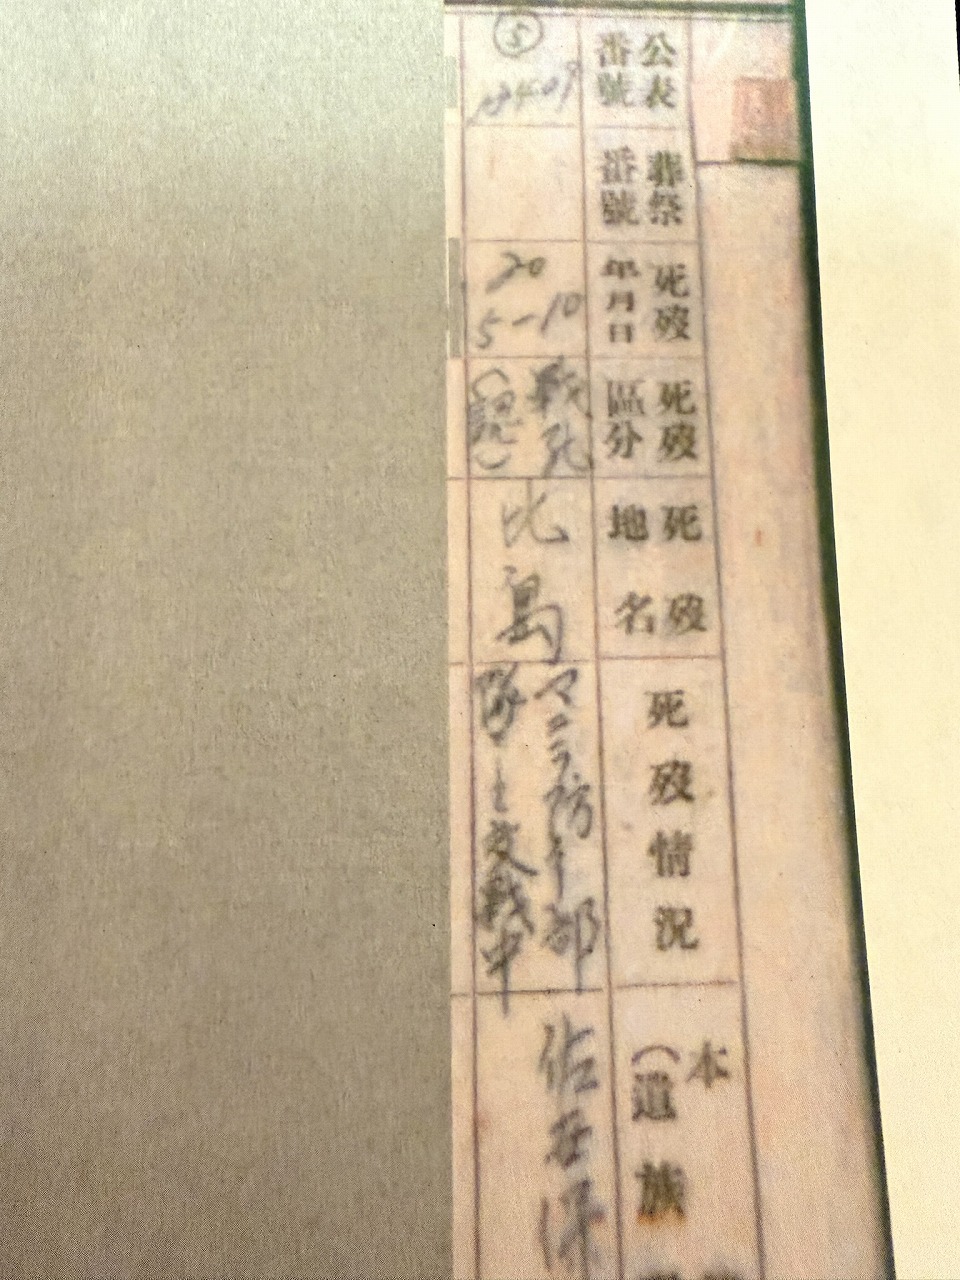 公表
番號
葬祭
番號
死歿
年月日
死歿
區分
死歿
地名
死歿情況
本
(遺族
⑤
20
5-10
戦死
(認)
比島
マニラ防衛部
隊
交戦中
佐世保